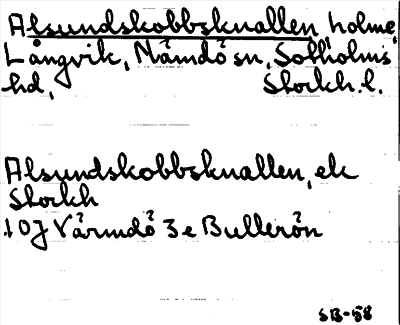 Alsundskobbsknallen, holme,
Långvik, Nämdö sn, Sotholms
hd, Stockh. l.
Alsundskobbsknallen, ek
Stockh
10J Värmdö 3e Bullerön
SB-58